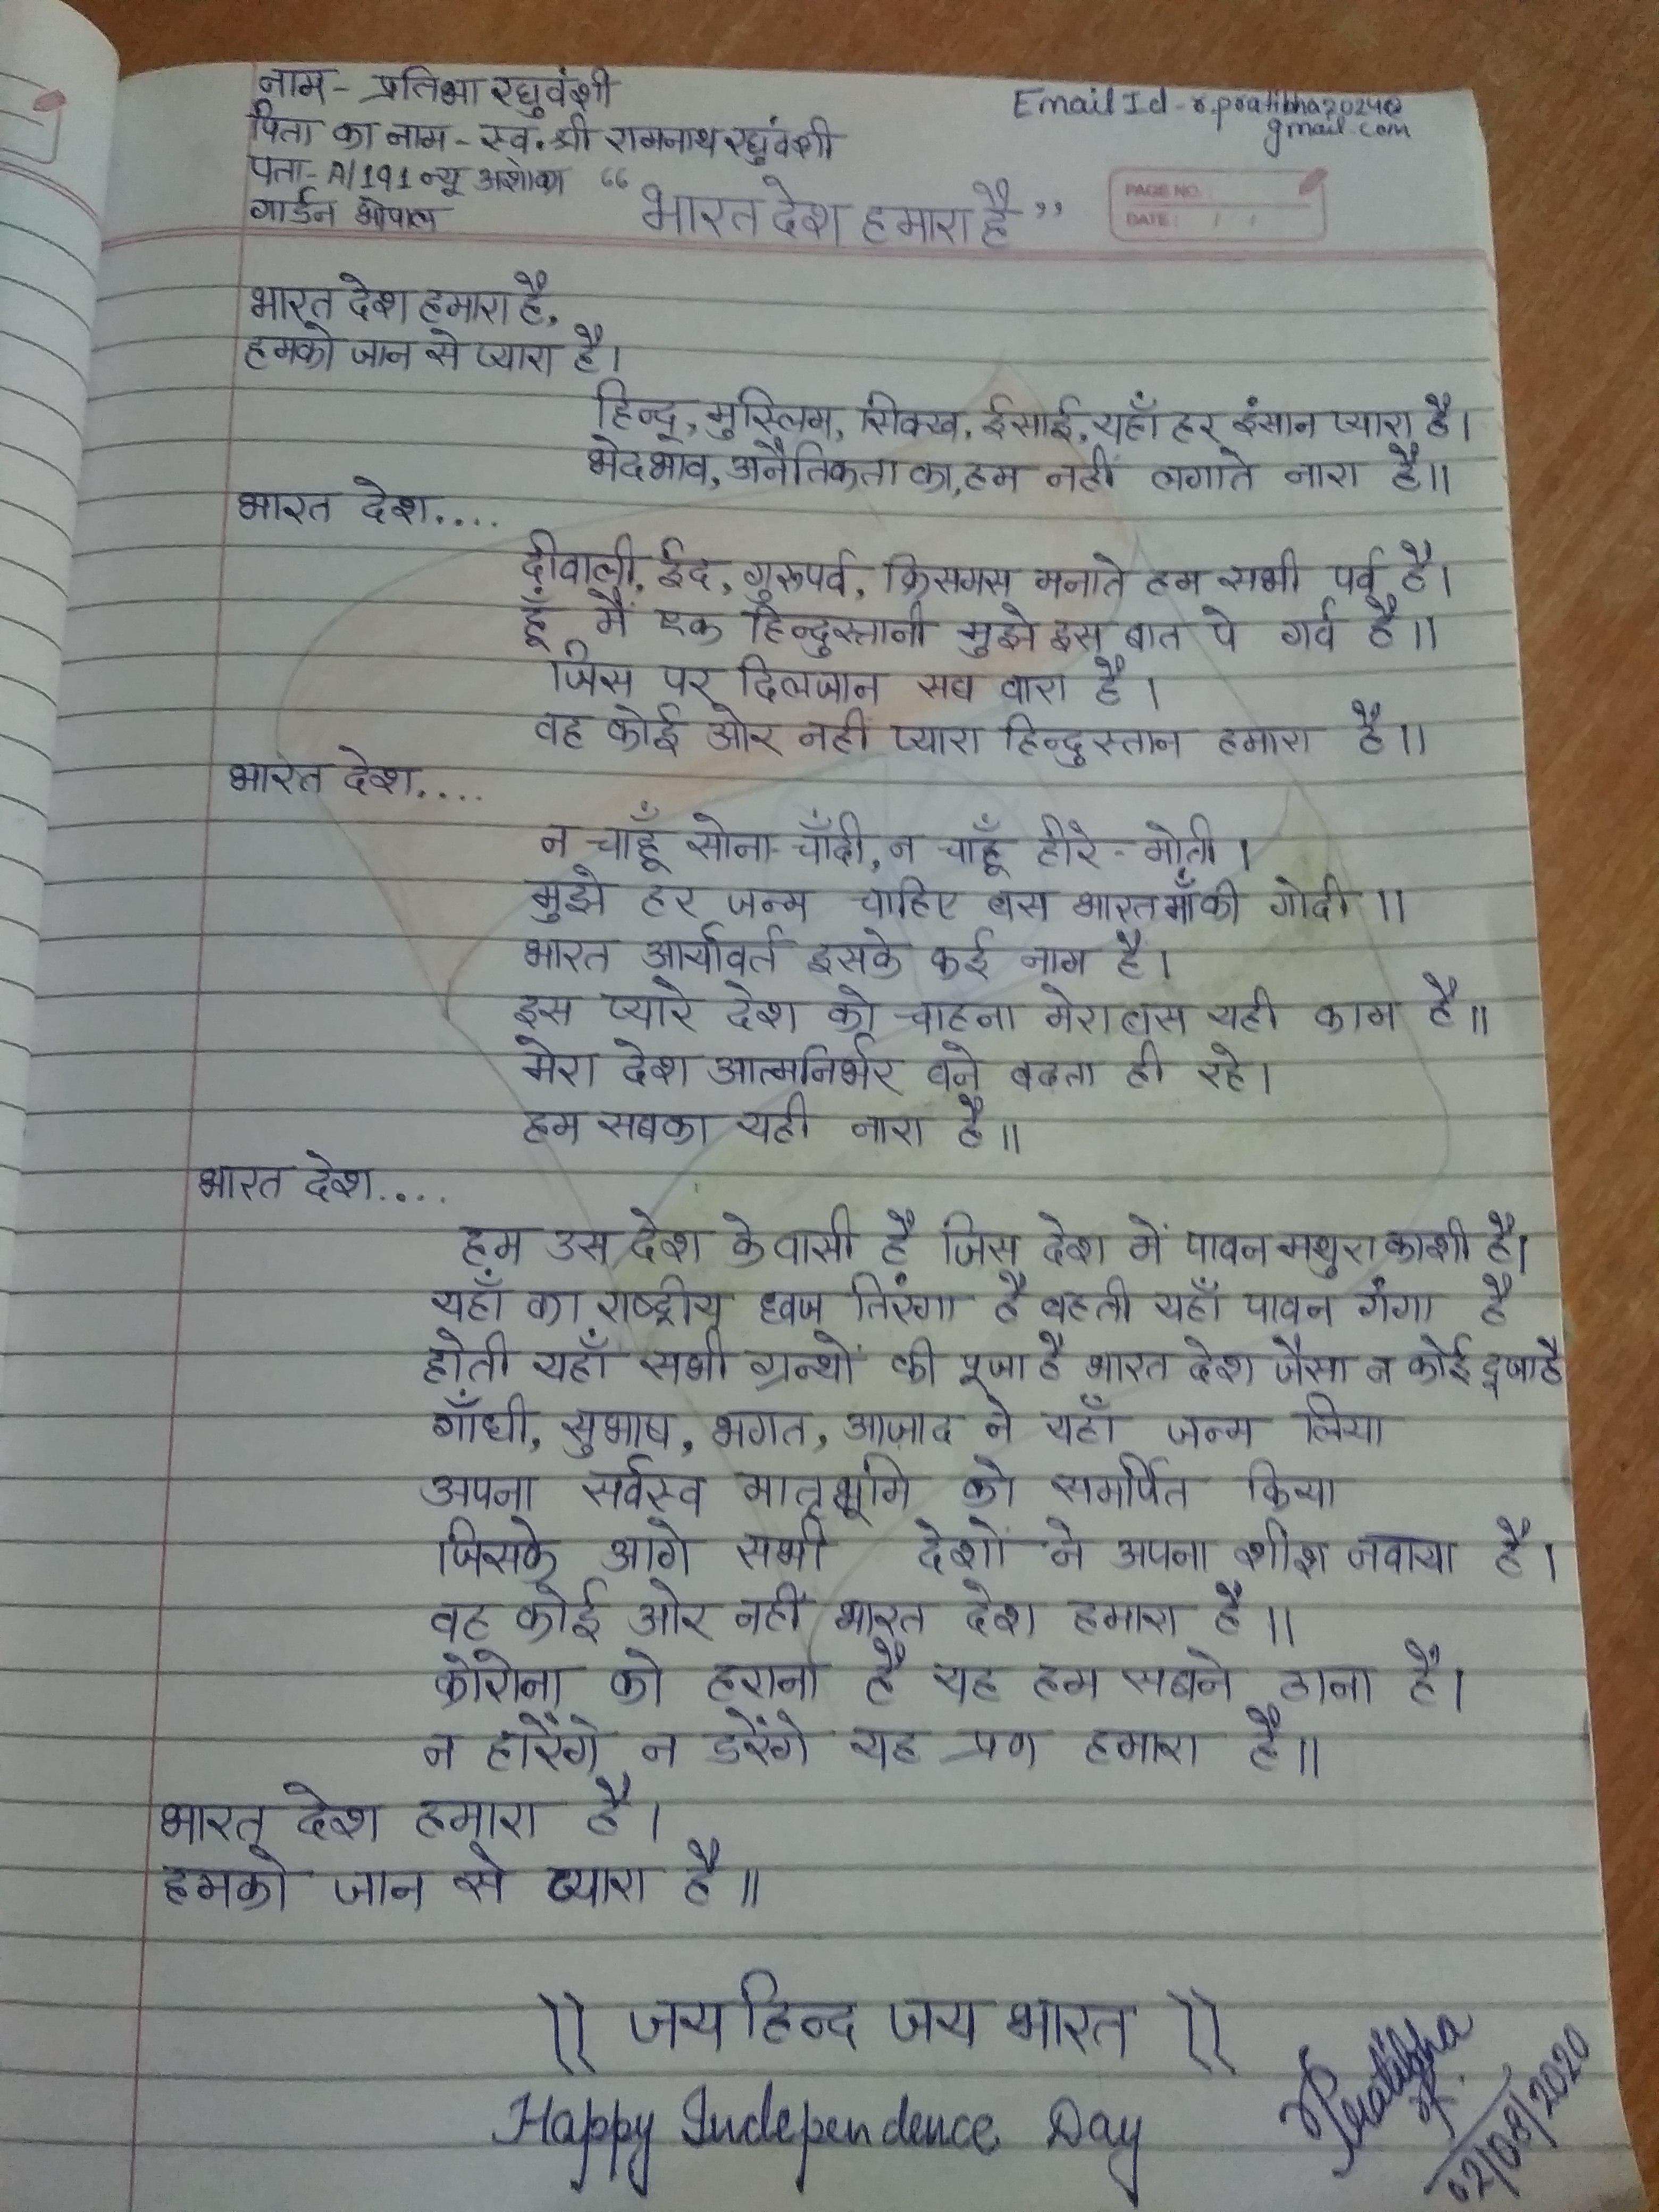 नाम- प्रतिभा रघुवंशी
Email Id - r.pratibha2024@
gmail.com
पिता का नाम - स्व. श्री रामनाथ रघुवंशी
पता- A/191 न्यू अशोका
गार्डन भोपाल
“भारत देश हमारा है”
PAGE NO.
DATE: / /
भारत देश हमारा है,
हमको जान से प्यारा है।
हिन्दू, मुस्लिम, सिक्ख, ईसाई, यहाँ हर इंसान प्यारा है।
भेदभाव, अनैतिकता का, हम नहीं लगाते नारा है॥
भारत देश....
दीवाली, ईद, गुरुपर्व, क्रिसमस मनाते हम सभी पर्व है।
हूँ मैं एक हिन्दुस्तानी मुझे इस बात पे गर्व है॥
जिस पर दिलजान सब वारा है।
वह कोई ओर नहीं प्यारा हिन्दुस्तान हमारा है॥
भारत देश....
न चाहूँ सोना-चाँदी, न चाहूँ हीरे-मोती।
मुझे हर जन्म चाहिए बस भारत माँ की गोदी॥
भारत आर्यावर्त इसके कई नाम है।
इस प्यारे देश को चाहना मेरा बस यही काम है॥
मेरा देश आत्मनिर्भर बने बढता ही रहे।
हम सबका यही नारा है॥
भारत देश....
हम उस देश के वासी है जिस देश में पावन मथुरा काशी है।
यहाँ का राष्ट्रीय ध्वज तिरंगा है बहती यहाँ पावन गंगा है
होती यहाँ सभी ग्रन्थों की पूजा है भारत देश जैसा न कोई दूजा है
गाँधी, सुभाष, भगत, आज़ाद ने यहाँ जन्म लिया
अपना सर्वस्व मातृभूमि को समर्पित किया
जिसके आगे सभी देशों ने अपना शीश नवाया है।
वह कोई ओर नहीं भारत देश हमारा है॥
कोरोना को हराना है यह हम सबने ठाना है।
न हारेंगे न डरेंगे यह प्रण हमारा है॥
भारत देश हमारा है।
हमको जान से प्यारा है॥
॥ जय हिन्द जय भारत ॥
Happy Independence Day
Pratibha
R.
02/08/2020